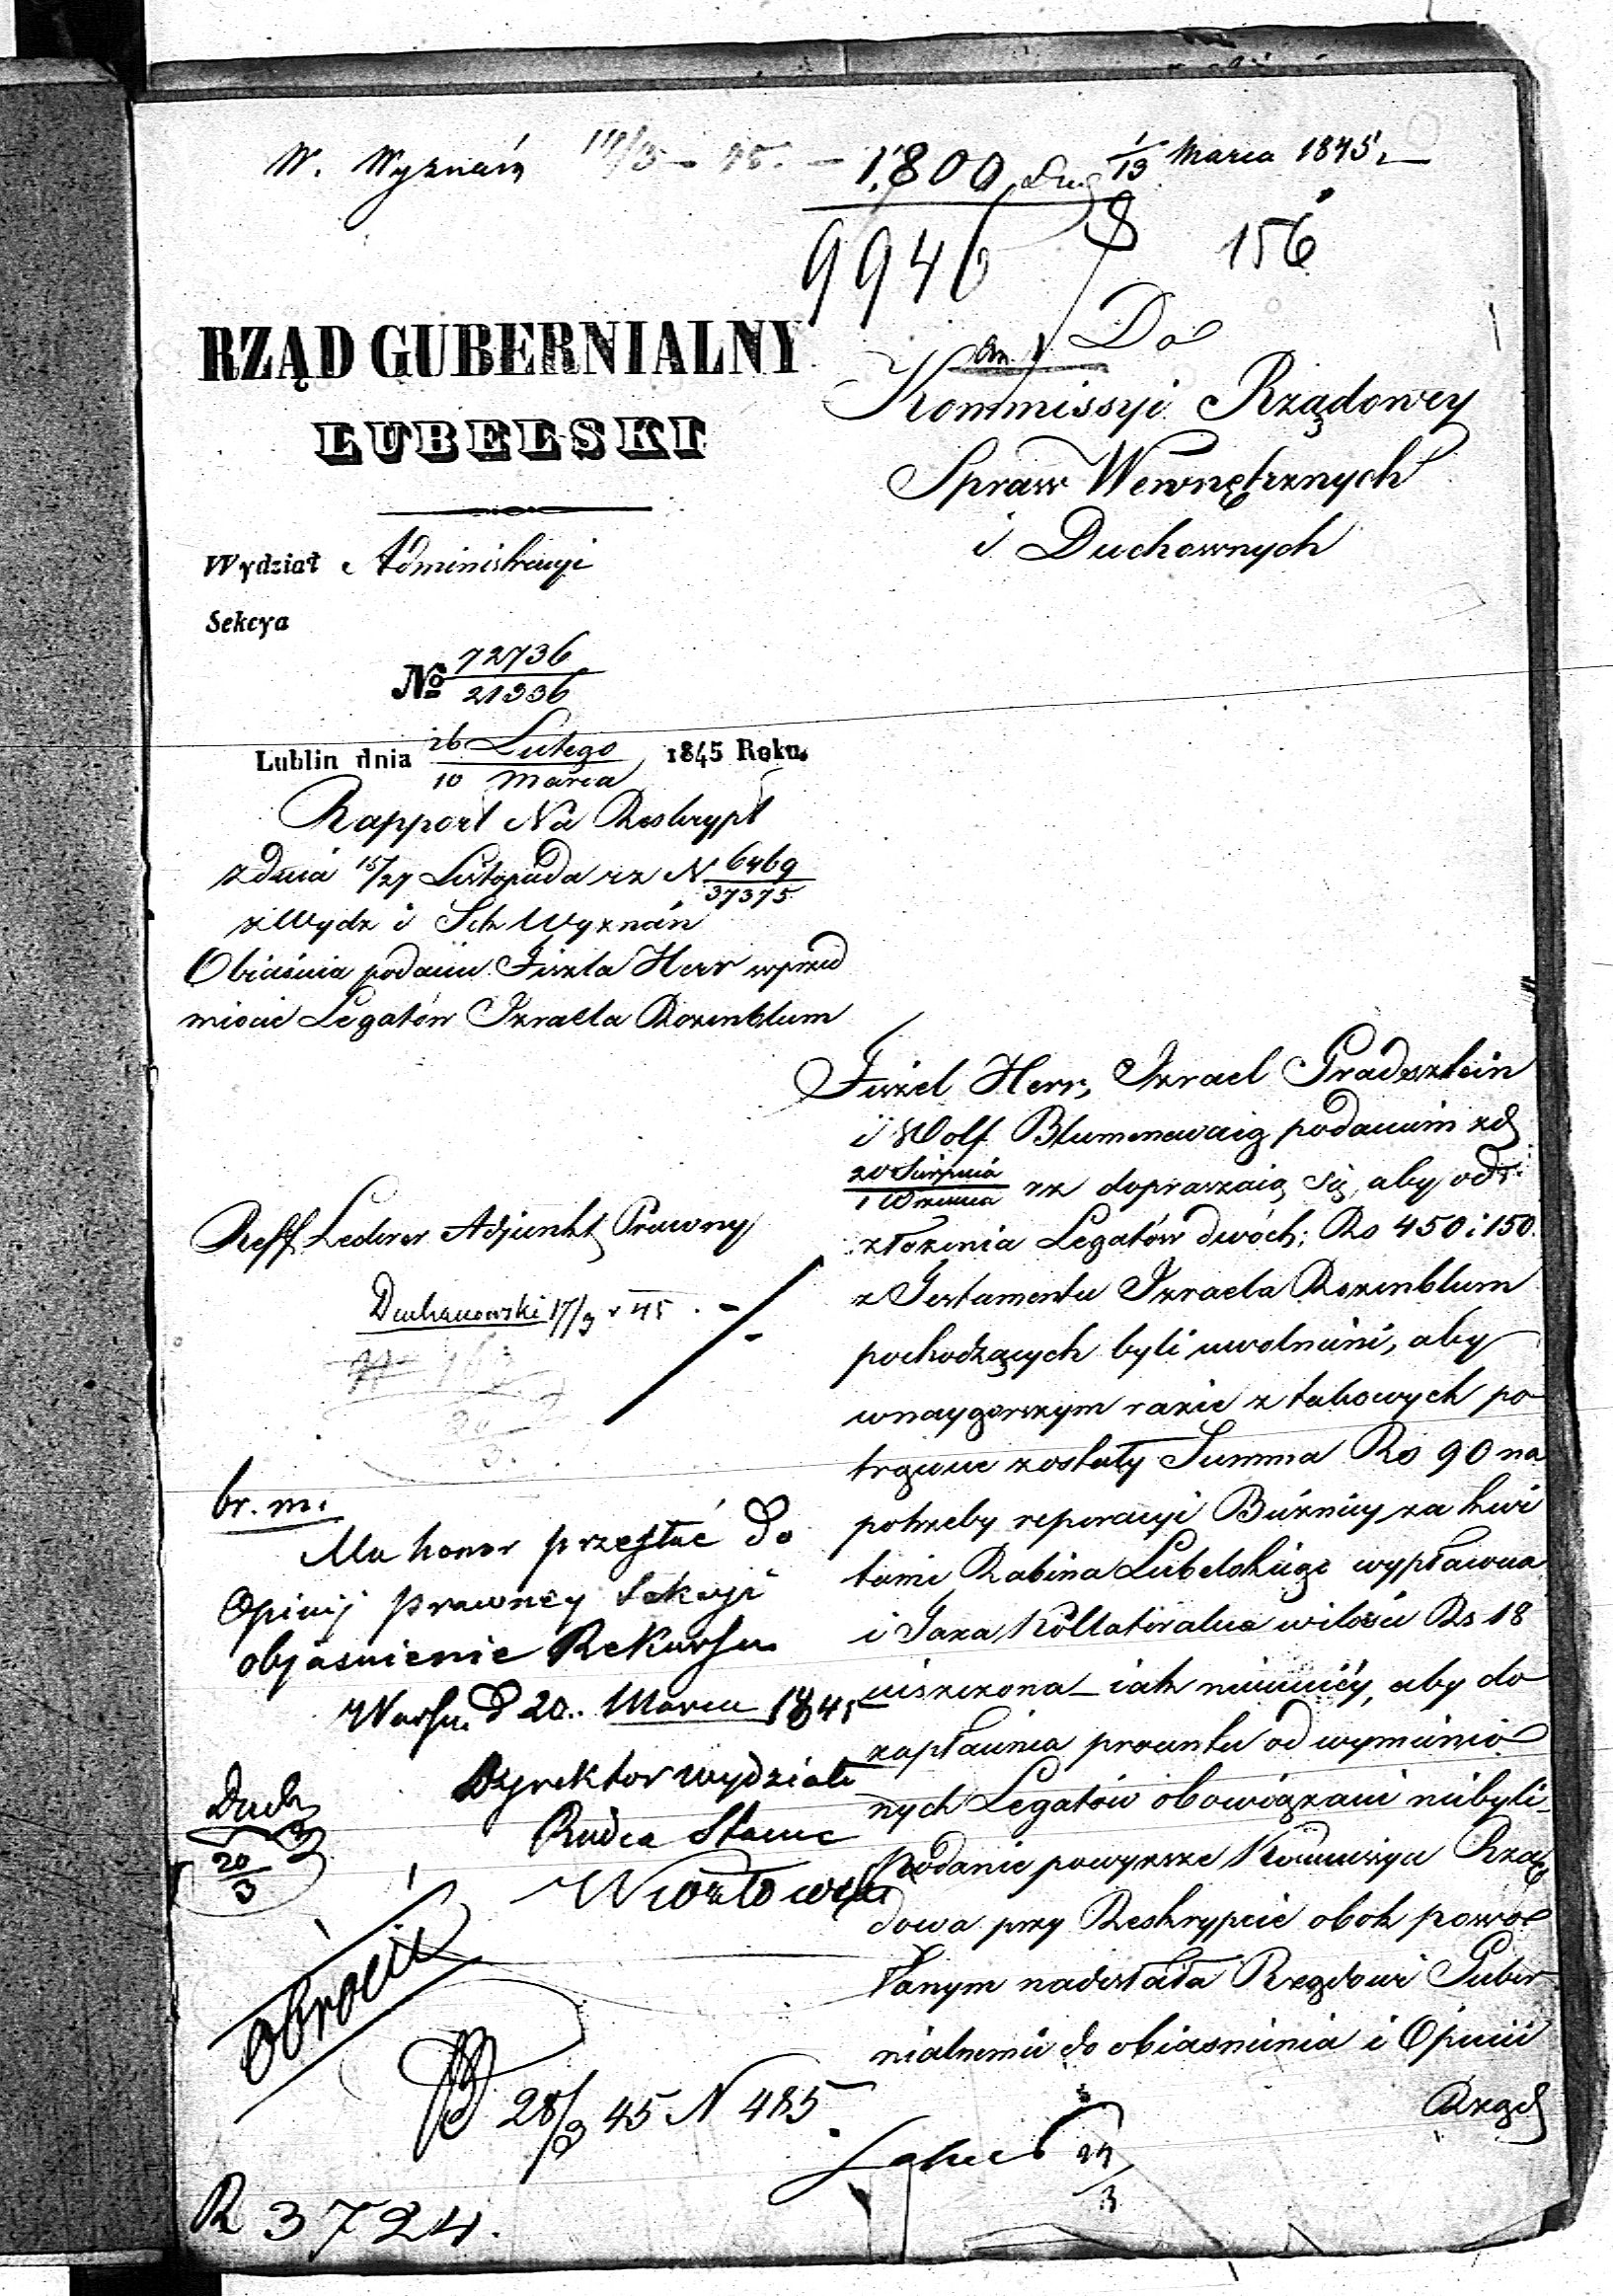 W. Wyznań 14/3 - 45. - 1,800 1/13 Marca 1845
9946 156
RZĄD GUBERNIALNY
LUBELSKI
Do
Kommissyi Rządowey
Spraw Wewnętrznych
i Duchownych
Wydział Administracyi
Sekcya
No 72736
21336
Lublin dnia 26 Lutego 1845 Roku.
10 Marca
Rapport Na Reskrypt
z dnia 15/27 Listopada rz N 6469
37375
z Wydz i Sek Wyznań
Obiaśnia podanie Fiszla Herr wprzed
miocie Legatów Izraela Rozenblum
Fiszel Herr, Izrael Gradesztein
i Wolf Blumencwaig podaniem zd
20 Sierpnia
1 Września rz dopraszaią się, aby od
złożenia Legatów dwóch: Rs 450 i 150
z Testamentu Izraela Rozenblum
pochodzących byli uwolnieni, aby
wnaygorszym razie z takowych po
trącone zostały Summa Rs 90 na
potrzeby reperacyi Bóżnicy za kwi
tami Rabina Lubelskiego wypłacona
i Taxa Kollateralna wilości Rs 18
uiszczona - iak niemniéy, aby do
zapłacenia procentu od wymienio
nych Legatów obowiązani niebyli -
Podanie powyższe Kommissya Rzą
dowa przy Reskrypcie obok powo
łanym nadesłała Rządowi Guber
nialnemu do obiasnienia i Opinii
Rząd
Reff Lederer Adjunkt Prawny
Duchanowski 17/3 45
br. m.
Ma honor przesłać do
Opinij prawney Sekcyi
objasnienie Rekursu
Warsz. d 20. Marca 1845
Dyrektor Wydziału
Radca Stanu
Duch
20
3
obrocić
28/3 45 N 485
24
3
R 3724.